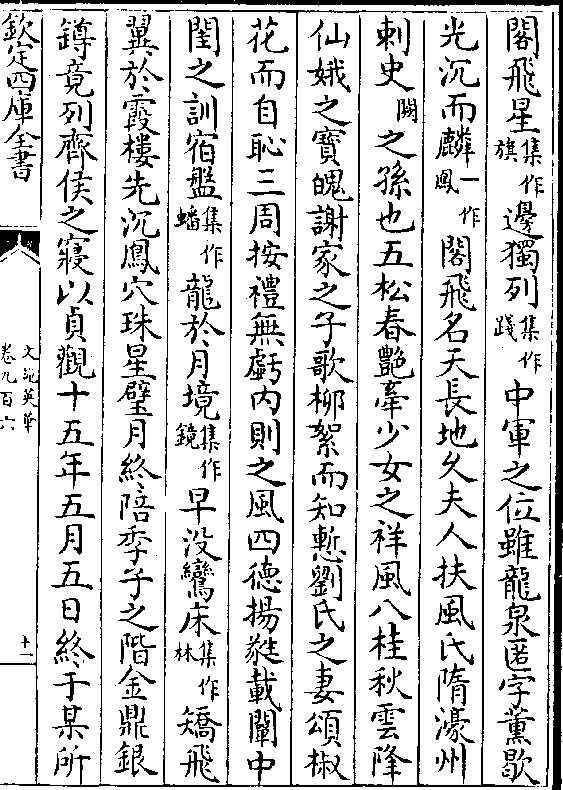 閣飛星集作旗邊獨列集作踐中軍之位雖龍泉匿字薰歇
光沉而麟一作鳳閣飛名天長地久夫人扶風氏隋濠州
刺史闕之孫也五松春艷牽少女之祥風八桂秋雲降
仙娥之寶魄謝家之子歌柳絮而知慙劉氏之妻頌椒
花而自恥三周按禮無虧内則之風四德揚蕤載闡中
閨之訓宿盤集作蟠龍於月境集作鏡早没鸞床集作林矯飛
翼於霞樓先沉鳳穴珠星璧月終陪季子之階金鼎銀
鐏竟列齊侯之寢以貞觀十五年五月五日終于某所
欽定四庫全書
文苑英華
卷九百六
十一